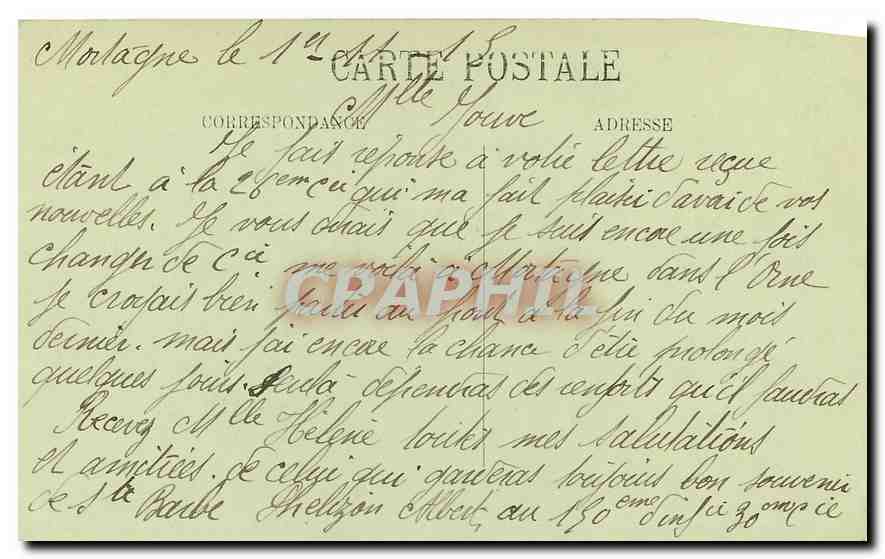 Mortagne le 1er 11 15
CARTE POSTALE
Mlle Jouve
CORRESPONDANCE ADRESSE
Je fait réponse à votre lettre reçue
étant à la 26em Cie qui ma fait plaisir d'avoir de vos
nouvelles. Je vous dirais que je suis encore une fois
changer de Cie me voilà à Mortagne dans l'Orne
CRAPHIL
je croyais bien partir au front à la fin du mois
dernier. mais j'ai encore la chance d'être prolongé
quelques jours. cela dépendras des renforts qu'il faudras
Recevez Mlle Hélène toutes mes salutations
et amitiées. de celui qui garderas toujours bon souvenir
de Ste Barbe Thelizon Albert au 130ème d'inf ie 30em Cie